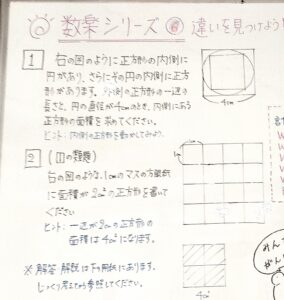 数楽シリーズ⑥ 違いを見つけよう!
1 右の図のように正方形の内側に
円があり、さらにその円の内側に正方
形があります。外側の正方形の一辺の
長さと、円の直径が4cmのとき、内側にある
正方形の面積を求めてください。
ヒント:内側の正方形を動かしてみよう。
4cm
2 (1の類題)
右の図のような、1cmのマスの方眼紙
に面積が2cm²の正方形を書いて
ください
ヒント:一辺が2cmの正方形の
面積は4cm²になります。
1cm
※解答・解説は下の用紙にあります。
じっくり考えてから参照してください。
4cm²
みん
がん